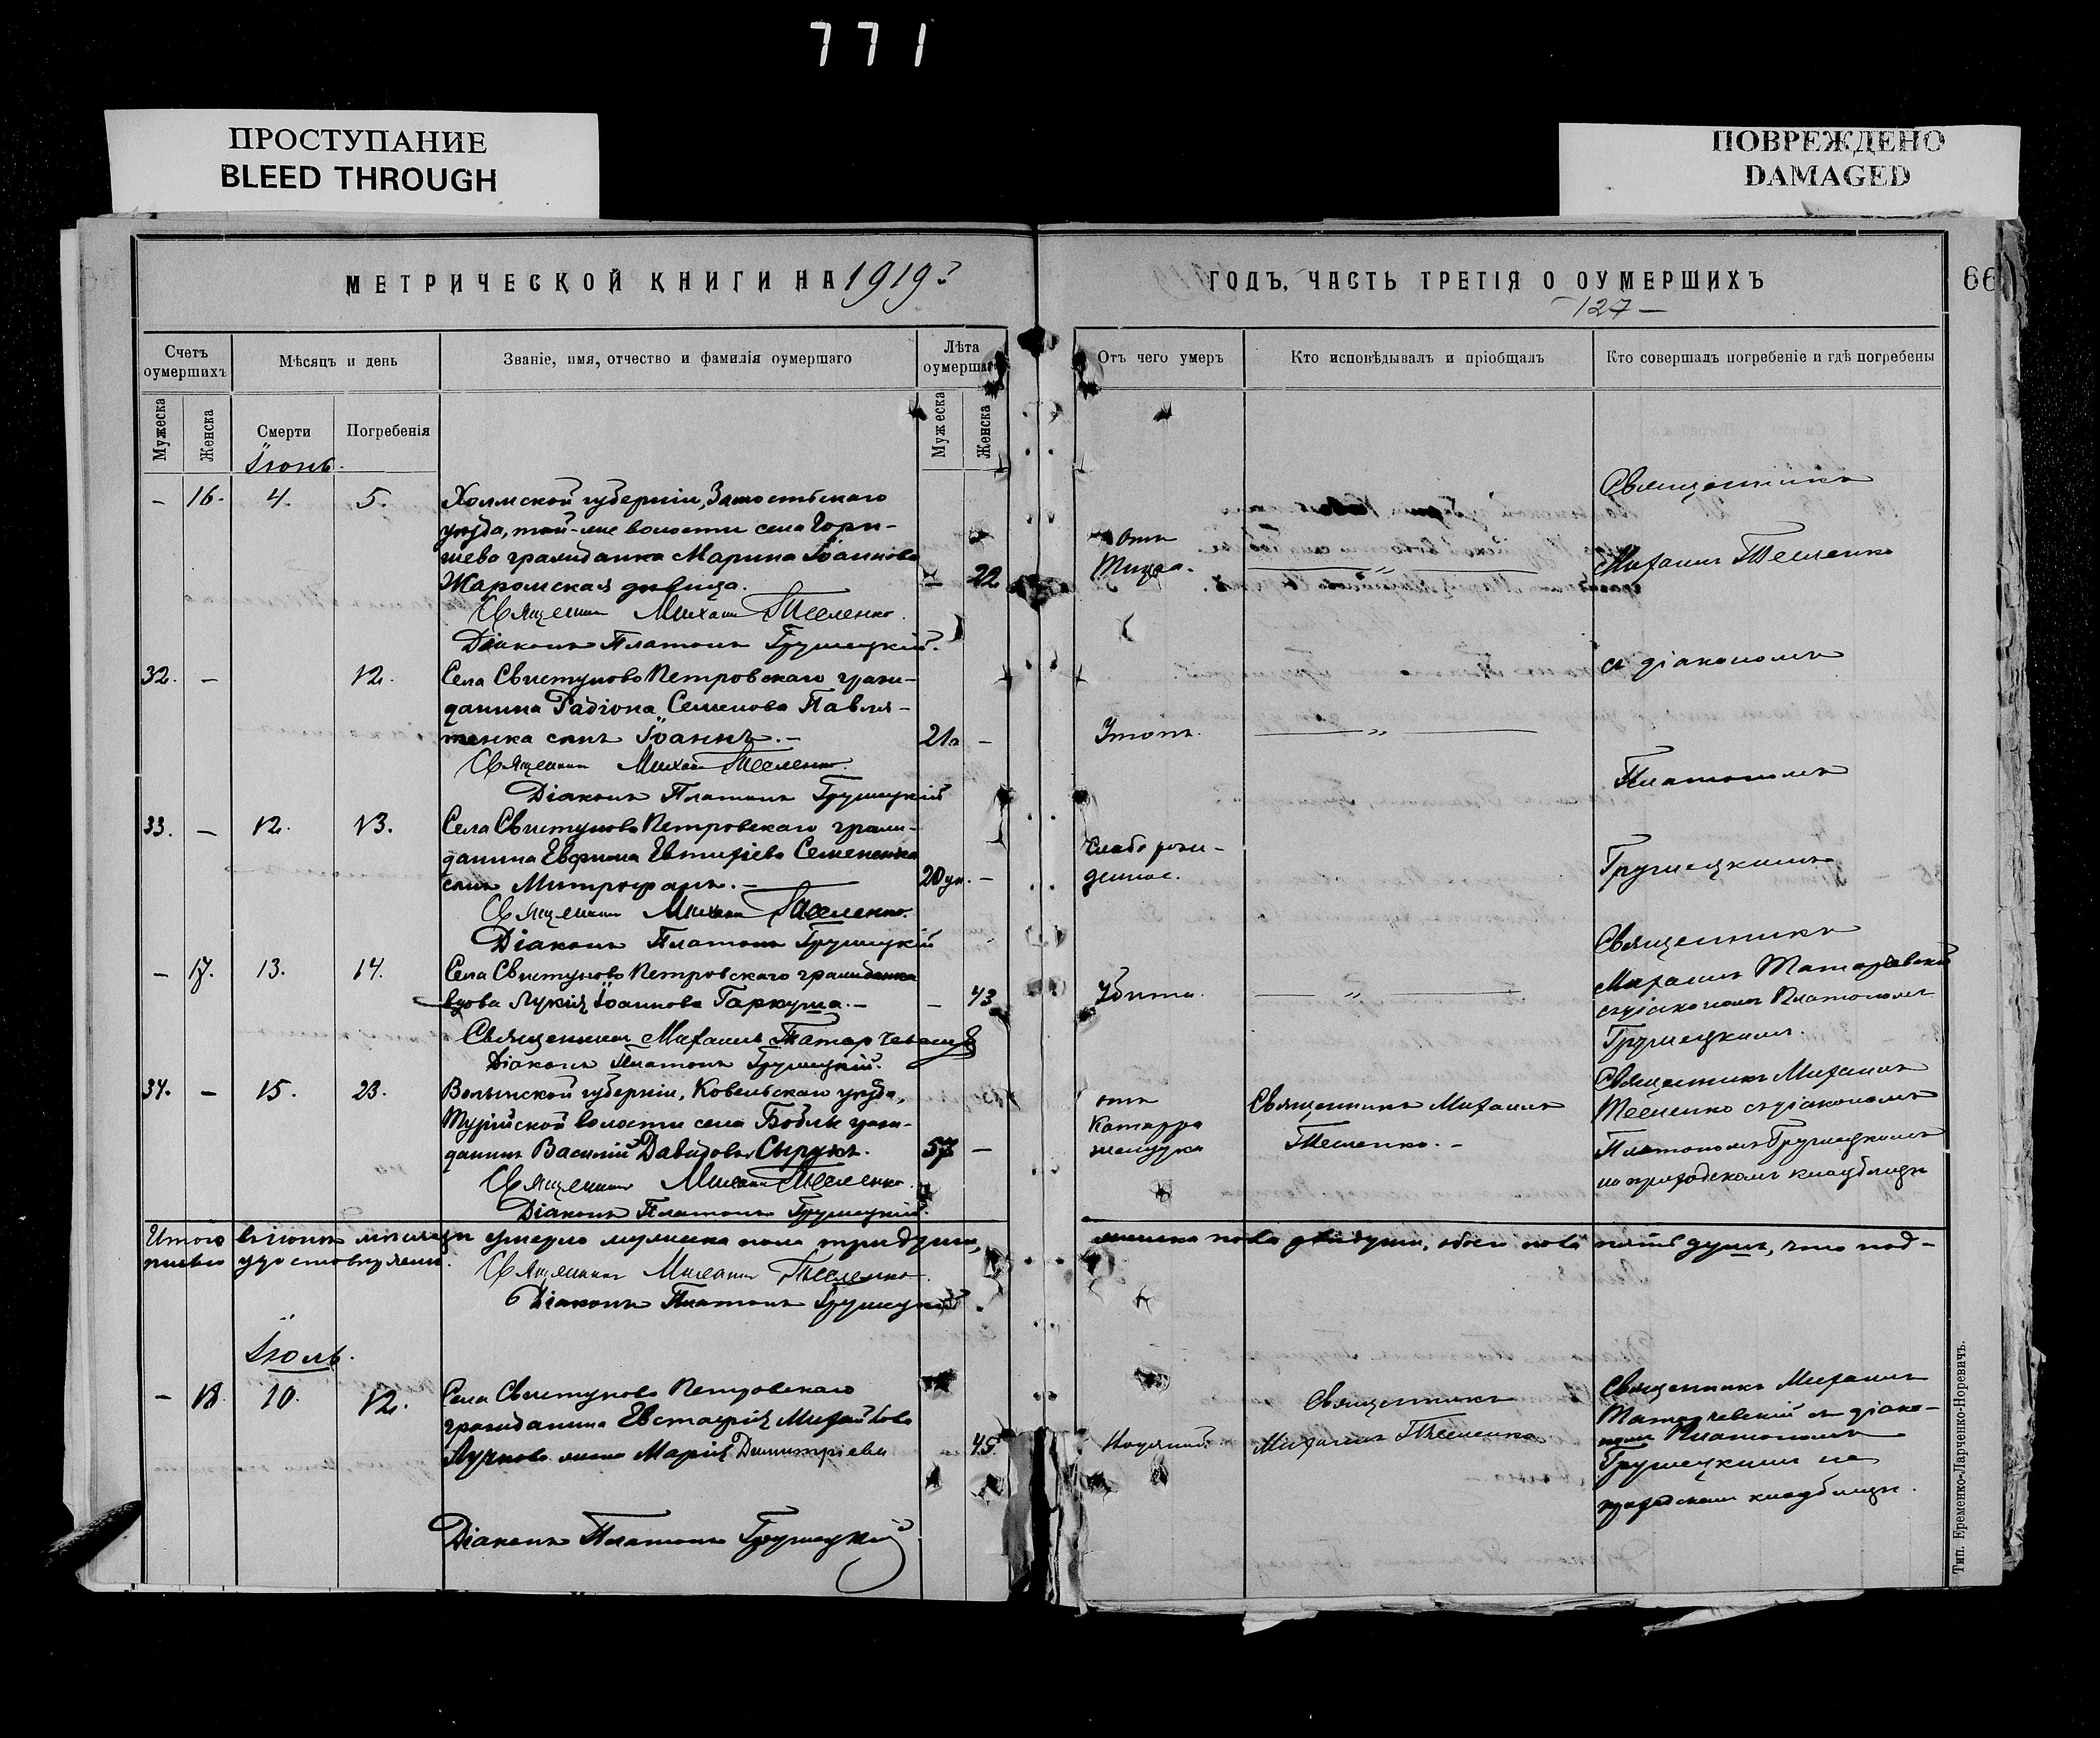 771
ПРОСТУПАНИЕ
BLEED THROUGH
ПОВРЕЖДЕНО
DAMAGED
МЕТРИЧЕСКОЙ КНИГИ НА 1919 г.
ГОДЪ, ЧАСТЬ ТРЕТІЯ О ОУМЕРШИХЪ
66
127
Счетъ оумершихъ
Мѣсяцъ и день
Званіе, имя, отчество и фамилія оумершаго
Лѣта оумершаго
Отъ чего умеръ
Кто исповѣдывалъ и пріобщалъ
Кто совершалъ погребеніе и гдѣ погребены
Мужеска
Женска
Смерти
Погребенія
Мужеска
Женска
Іюнь.
– 16. 4. 5. Холмской губерніи, Замостьскаго
уѣзда, той-же волости села
гражданка Марина Іоаннова
дѣвица. – 22
Отъ
тифа. „
Священникъ
Михаилъ Тесленко
Священникъ Михаилъ Тесленко.
Діаконъ Платонъ Грушецкій.
съ діакономъ
32. – 12. Села Свистуново Петровскаго граж-
данина Радіона Семенова Павлю-
ченка сынъ Іоаннъ. – 21 –
Утопъ. „
Платономъ
Священникъ Михаилъ Тесленко.
Діаконъ Платонъ Грушецкій
33. – 12. 13. Села Свистуново Петровскаго граж-
данина Евфима Евтихіева Семененка
сынъ Митрофанъ. – 20 дн. –
Слабо рож-
денное.
Грушецкимъ
Священникъ Михаилъ Тесленко.
Діаконъ Платонъ Грушецкій
– 17. 13. 14. Села Свистуново Петровскаго гражданка
вдова Лукія Іоаннова Гаркуша. – – 43
Убита. „
Священникъ
Михаилъ Татарчевскій
съ діакономъ Платономъ
Грушецкимъ.
Священникъ Михаилъ Татарчевскій
Діаконъ Платонъ Грушецкій.
34. – 15. 23. Волынской губерніи, Ковельскаго уѣзда,
Турійской волости села Боблы граж-
данинъ Василій Давидовъ Сырукъ. 57 –
отъ
Катарра
желудка
Священникъ Михаилъ
Тесленко. –
Священникъ Михаилъ
Тесленко съ діакономъ
Платономъ Грушецкимъ
на приходскомъ кладбищѣ
Священникъ Михаилъ Тесленко.
Діаконъ Платонъ Грушецкій.
Итого въ іюнѣ мѣсяцѣ умерло мужеска пола три души, женска пола двѣ души, обоего пола пять душъ, что под-
писью удостовѣряемъ.
Священникъ Михаилъ Тесленко.
Діаконъ Платонъ Грушецкій.
Іюль.
– 18. 10. 12. Села Свистуново Петровскаго
гражданина Евстафія Михайлова
Лучкова жена Марія Димитріева 45.
Священникъ
Михаилъ Тесленко
Священникъ Михаилъ
Татарчевскій съ діако-
номъ Платономъ
Грушецкимъ на
приходскомъ кладбищѣ.
Діаконъ Платонъ Грушецкій
Тип. Еременко-Ларченко-Норевичъ.